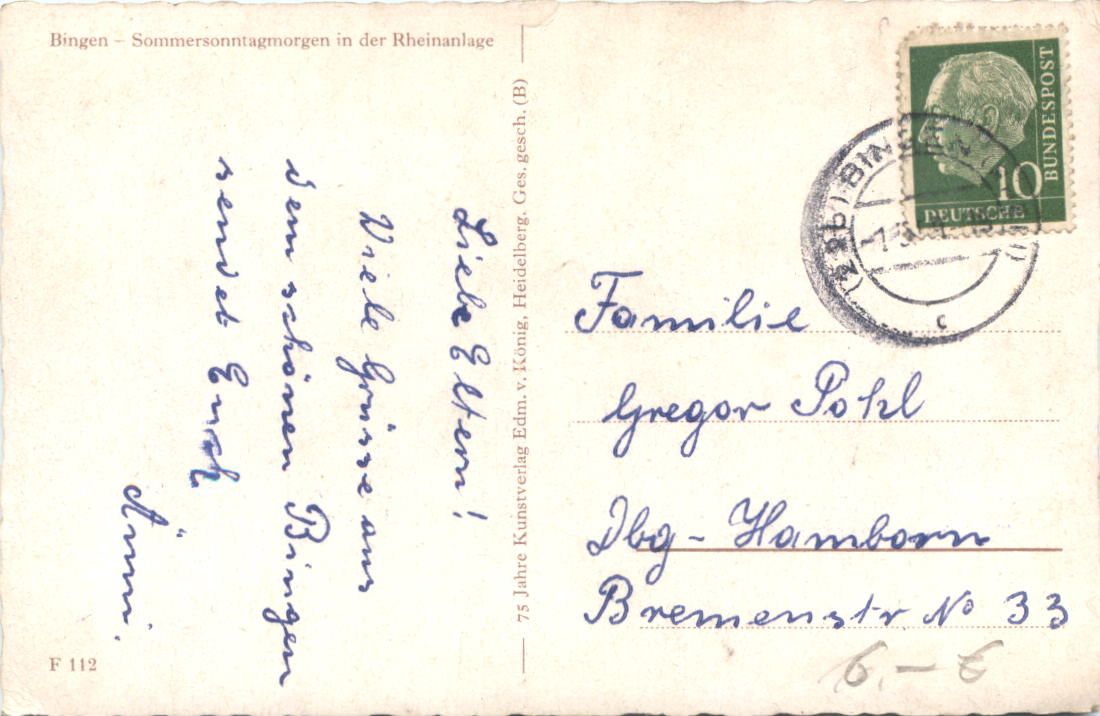 Bingen – Sommersonntagmorgen in der Rheinanlage
Liebe Eltern!
Viele Grüsse aus
dem schönen Bingen
sendet Euch
Änni.
F 112
75 Jahre Kunstverlag Edm. v. König, Heidelberg. Ges. gesch. (B)
BUNDESPOST
10
DEUTSCHE
(22b) BIN
c
Familie
Gregor Pohl
Dbg - Hamborn
Bremenstr No 33
6.– €